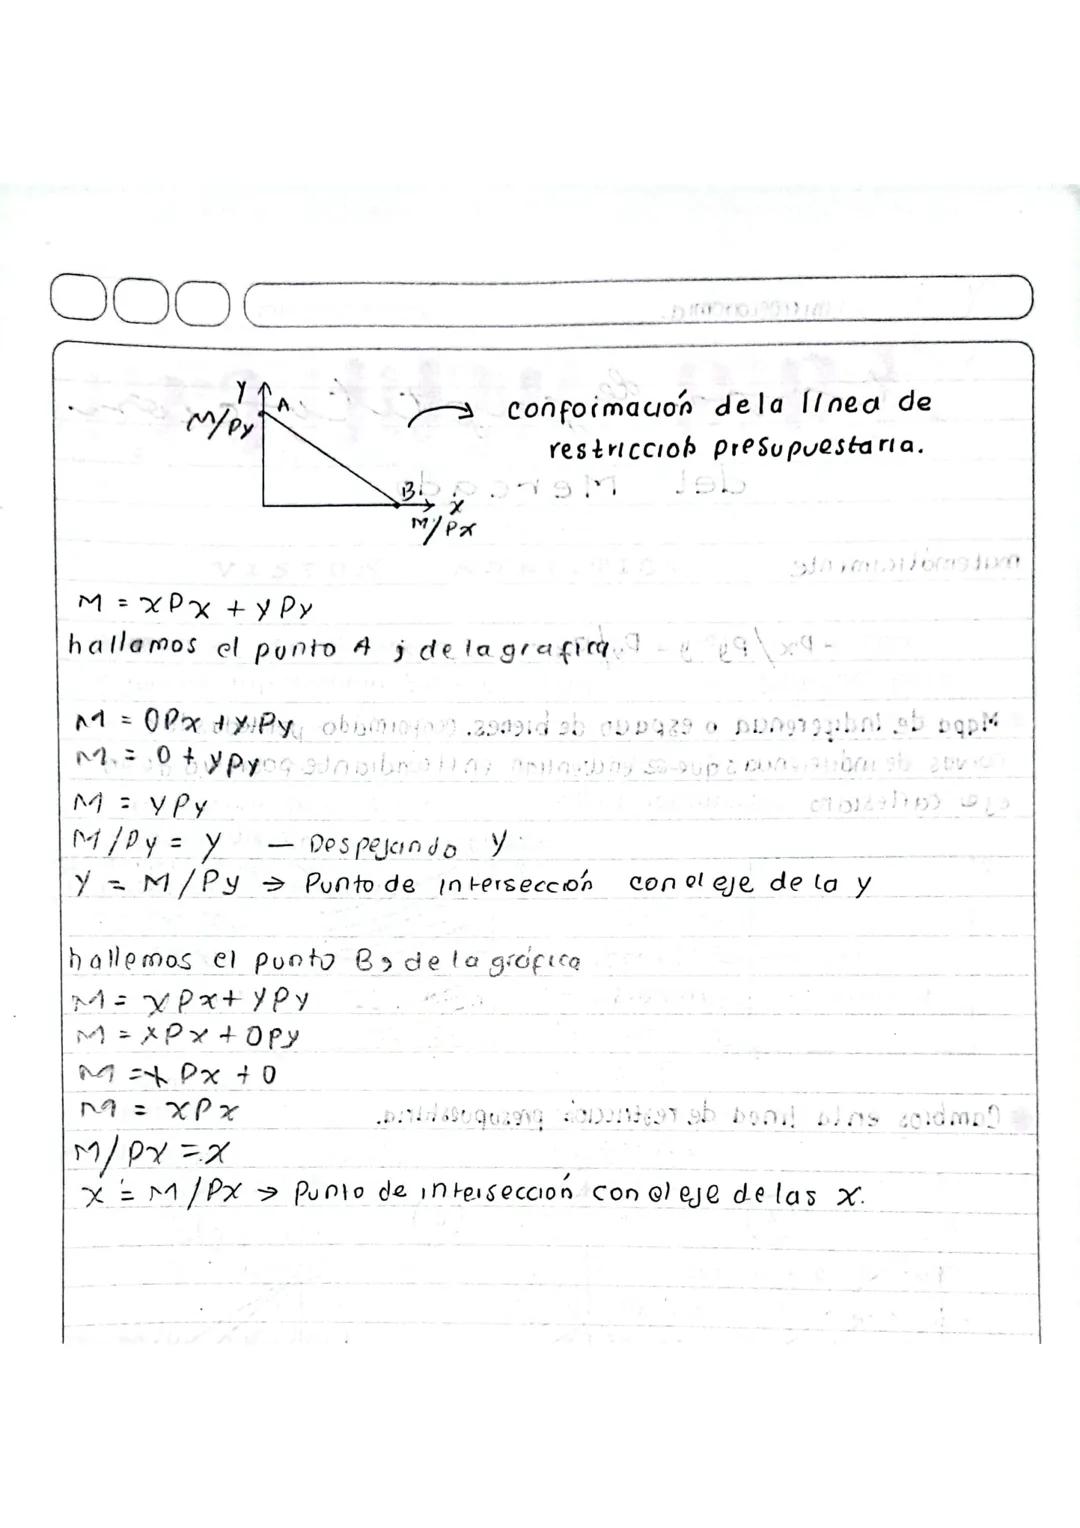 Y
A
M/Py
→ conformación de la línea de
restricción presupuestaria.
B
x
M/Px
M = xPx + yPy
hallamos el punto A ; de la grafica
M = 0Px + yPy
M = 0 + yPy
M = yPy
M/Py = y — Despejando y
y = M/Py → Punto de intersección con el eje de la y
hallemos el punto B, de la gráfica
M = xPx + yPy
M = xPx + 0Py
M = x Px + 0
M = xPx
M/Px = x
x = M/Px → Punto de intersección con el eje de las x.